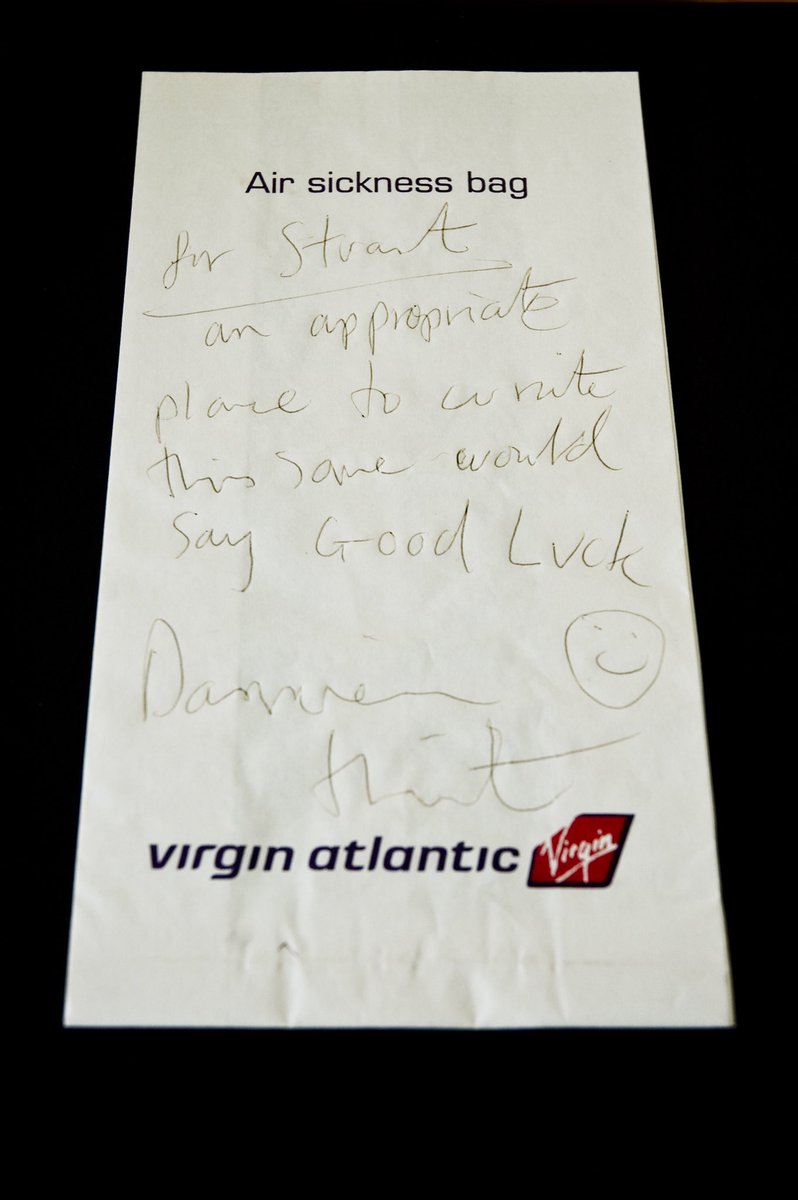 Air sickness bag
for Stuart
an appropriate
place to write
this some would
say Good Luck
Damien
Hirst
virgin atlantic Virgin